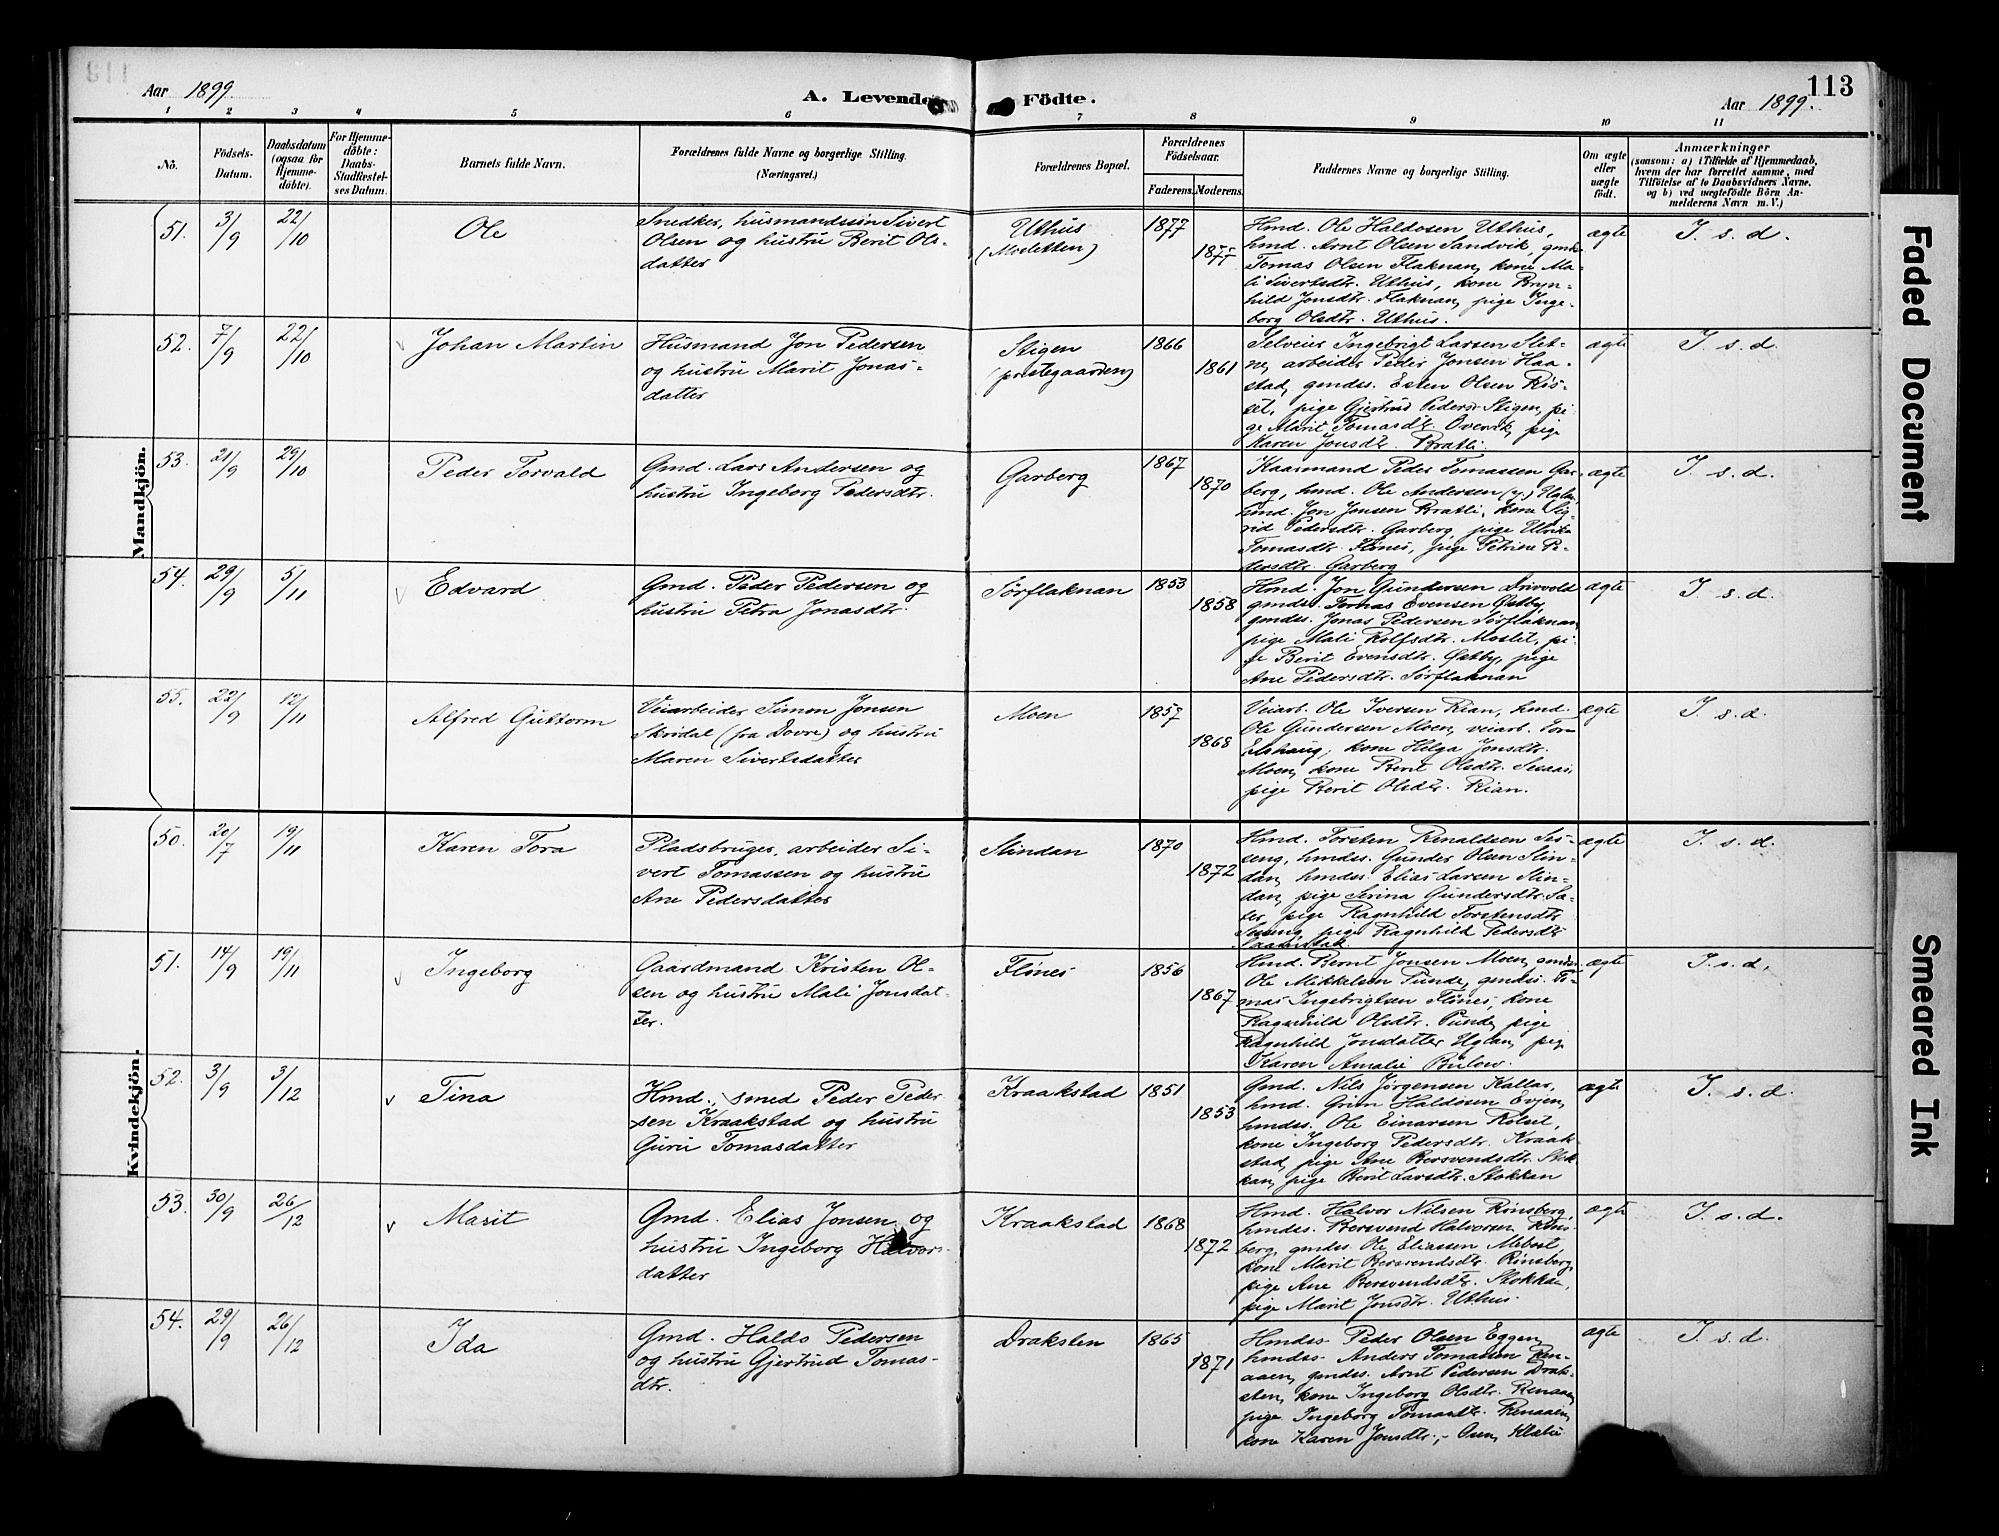 113
Aar 1899.
A. Levende Födte.
Aar 1899.
1 2 3 4 5 6 7 8 9 10 11
No.
Födsels-
Datum.
Daabsdatum
(ogsaa for
Hjemme-
döbte).
For Hjemme-
döbte:
Daabs-
Stadfæstel-
ses Datum.
Barnets fulde Navn.
Forældrenes fulde Navne og borgerlige Stilling.
(Næringsvei.)
Forældrenes Bopæl.
Forældrenes
Födselsaar.
Faderens.
Moderens.
Faddernes Navne og borgerlige Stilling.
Om ægte
eller
uægte
födt.
Anmærkninger
(saasom: a) i Tilfælde af Hjemmedaab,
hvem der har forrettet samme, med
Tilföielse af to Daabsvidners Navne,
og b) ved uægtefödte Börn An-
melderens Navn m. V.)
Mandkjön.
51. 3/9 22/10
Ole
Snedker, husmandssøn Sivert
Olsen og hustru Berit Ols-
datter
Uthus
(Mosletten)
1877
1877
Hmd. Ole Haldosen, Uthus,
hmd. Arnt Olsen Sandvik, gmds.
Tomas Olsen Flaknan, kone Ma-
li Sivertsdtr. Uthus, kone Bryn-
hild Jonsdtr. Flaknan, pige Inge-
borg Olsdtr. Uthus.
ægte
I. s. d.
52. 7/9 22/10
Johan Martin
Husmand Jon Pedersen
og hustru Marit Jonas-
datter
Stigen
(prestegaarden)
1866
1861
Selveier Ingebrigt Larsen Slet-
ne, arbeider Peder Jonsen Haa-
stad, gmds. Esten Olsen Røs-
set, pige Gjertrud Pedersd. Stigen, pi-
ge Marit Tomasdtr. Overvik, pige
Karen Jonsdtr. Bratli.
ægte
I. s. d.
53. 21/9 29/10
Peder Torvald
Gmd. Lars Andersen og
hustru Ingeborg Pedersdtr.
Garberg
1867
1870
Kaarmand Peder Tomassen Gar-
berg, hmd. Ole Andersen
hmd. Jon Jonsen Bratli, kone Sig-
rid Pedersdtr. Garberg, pige Ulrika
Tomasdtr. Flønes, pige Petrine Pe-
dersdtr. Garberg
ægte
I. s. d.
54. 29/9 5/11
Edvard
Gmd. Peder Pedersen og
hustru Petra Jonasdtr.
Sørflaknan
1853
1858
Hmd. Jon Gundersen Drivvold
gmds. Tomas Evensen Østby,
gmds. Jonas Pedersen Sørflaknan,
pige Mali Rolfsdtr. Moslet, pi-
ge Berit Evensdtr. Østby, pige
Ane Pedersdtr. Sørflaknan
ægte
I. s. d.
55. 22/9 12/11
Alfred Guttorm
Veiarbeider Simon Jonsen
Skridal (fra Dovre) og hustru
Maren Sivertsdatter
Moen
1857
1868
Veiarb. Ole Iversen Rian, hmd.
Ole Gundersen Moen, veiarb. Tore
Elshaug, kone Helga Jonsdtr.
Moen, kone Berit Olsdtr.
pige Berit Olsdtr. Rian.
ægte
I. s. d.
Kvindekjön.
50. 20/7 19/11
Karen Tora
Pladsbruger, arbeider Si-
vert Tomassen og hustru
Ane Pedersdatter
Slindan
1870
1872
Hmd. Torsten Renaldsen Ses-
seng, hmds. Gunder Olsen Slin-
dan, hmds. Elias Larsen Slin-
dan, pige Serina Gundersdtr. Sæ-
ter, pige Ragnhild Torstensdtr.
pige Ragnhild Pedersdtr.
ægte
I. s. d.
51. 14/9 19/11
Ingeborg
Gaardmand Kristen Ol-
sen og hustru Mali Jonsdat-
ter.
Flønes
1856
1867
Hmd. Bernt Jonsen Moen, gmds.
Ole Mikkelsen Punde, gmds. To-
mas Ingebrigtsen Flønes, kone
Ragnhild Olsdtr. Punde, pige
Ragnhild Jonsdatter Uglan, pige
Karen Amalie Bülow.
ægte
I. s. d.
52. 3/9 3/12
Tina
Hmd., smed Peder Peder-
sen Kraakstad og hustru
Guru Tomasdatter
Kraakstad
1851
1853
Gmd. Nils Jørgensen Kallar,
hmd. Grim Haldosen Evjen,
hmds. Ole Einarsen Rolset,
kone Ingeborg Pedersdtr. Kraak-
stad, pige Ane Bersvendsdtr. Stok-
kan, pige Berit Larsdtr. Stokkan
ægte
I. s. d.
53. 30/9 26/12
Marit
Gmd. Elias Jonsen og
hustru Ingeborg Halvors-
datter
Kraakstad
1868
1872
Hmd. Halvor Nilsen Rønsberg,
hmds. Bersvend Halvorsen Røns-
berg, gmds. Ole Eliassen Mebost
kone Marit Bersvendsdtr. Rønsberg,
pige Ane Bersvendsdtr. Stokkan,
pige Marit Jonsdtr. Uthus.
ægte
I. s. d.
54. 29/9 26/12
Ida
Gmd. Haldo Pedersen
og hustru Gjertrud Tomas-
dtr.
Draksten
1865
1871
Hmds. Peder Olsen Eggen,
hmds. Anders Tomassen Ren-
aaen, gmds. Arnt Pedersen Drak-
sten, kone Ingeborg Olsdtr. Renaaen,
pige Ingeborg Tomasdtr. Renaaen,
kone Karen Jonsdtr., Osen, Klæbu
ægte
I. s. d.
Faded Document
Smeared Ink